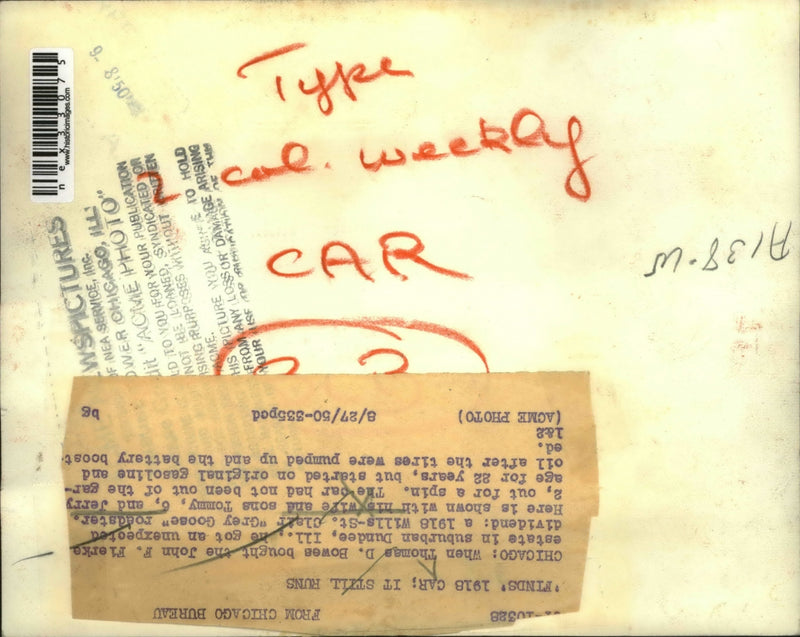 Type
2 col. weekly
CAR
9- 8'50
nex33075
www.historicimages.com
WSPICTURES
OF NEA SERVICE, Inc.
OWER CHICAGO, ILL.
"ACME PHOTO"
FOR YOUR PUBLICATION
D TO YOU FOR SYNDICATED OR
NOT BE LOANED,
ISING PURPOSES WITHOUT
TO HOLD
HIS PICTURE YOU
FROM ANY LOSS OR DAMAGE ARISING
A138-W
-10328 FROM CHICAGO BUREAU
'FINDS' 1918 CAR; IT STILL RUNS
CHICAGO: When Thomas D. Bowes bought the John F. Fierke
estate in suburban Dundee, Ill., he got an unexpected
dividend: a 1918 Wills-St. Clair "Grey Goose" roadster.
Here is shown with his wife and sons Tommy, 6, and Jerry
2, out for a spin. The car had not been out of the gar-
age for 22 years, but started on original gasoline and
oil after the tires were pumped up and the battery boost-
ed.
1&2
(ACME PHOTO) 8/27/50-335pcd bg